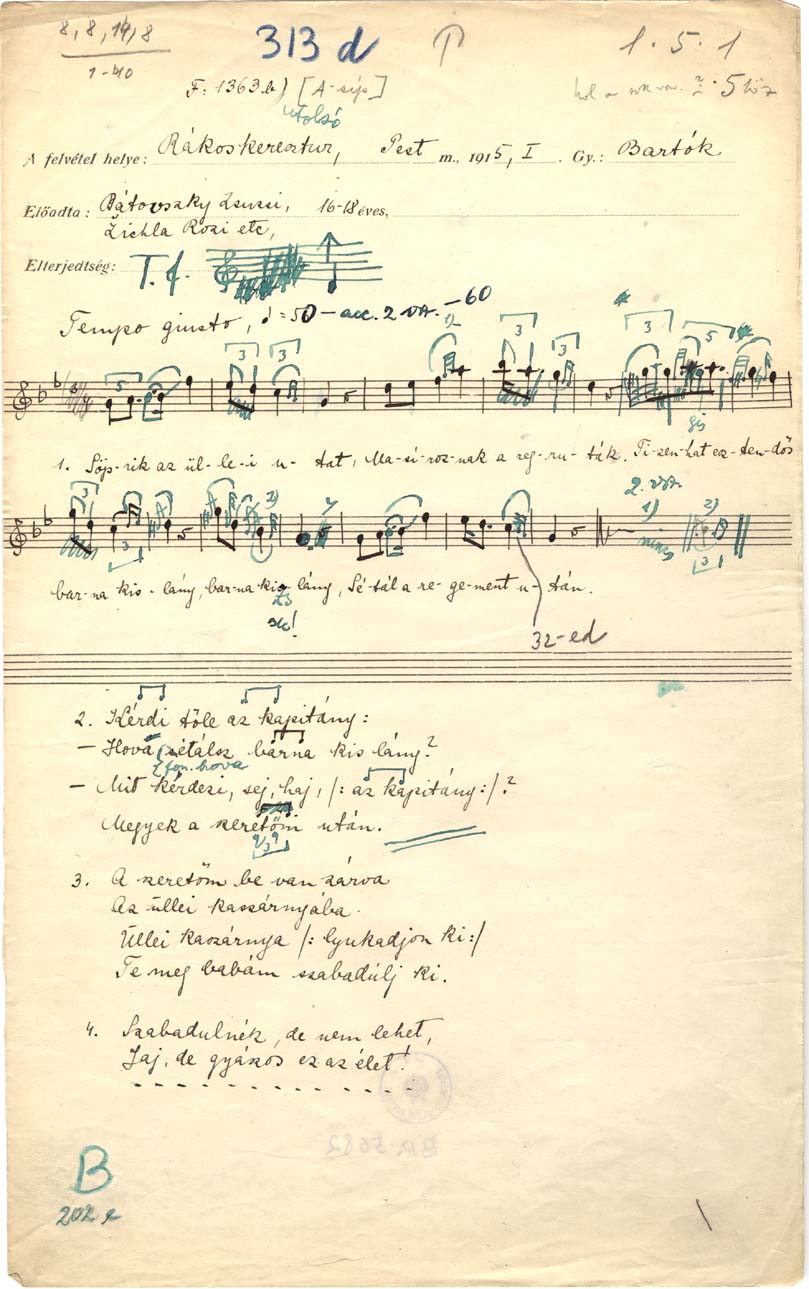 8, 8, 14, 8
1-40
313 d
1 . 5 . 1
F. 1363 b) [A-síp]
utolsó
hol a
A felvétel helye: Rákoskeresztur, Pest m., 1915, I. Gy.: Bartók
Előadta: Bátovszky Zsuzsi, 16-18 éves,
Zichla Rozi etc,
Elterjedtség: T. f.
Tempo giusto, ♩ = 50 – acc. 2 va. – 60
3 3 3 3 3 5
5
gis
1. Söp-rik az ül-le-i u-tat, Ma-si-roz-nak a reg-ru-ták. Ti-zen-hat ez-ten-dős
2. va.
3 3 2) 1) 2) 3
bar-na kis-lány, bar-na kis lány, Sé-tál a re-ge-ment u-tán.
sic!
32-ed
2. Kérdi tőle az kapitány:
– Hová sétálsz barna kis lány?
fon. hova
– Mit kérdezi, sej, haj, /: az kapitány :/?
Megyek a szeretőm után.
3. A szeretőm be van zárva
Az üllei kaszárnyába.
Üllei kaszárnya /: lyukadjon ki :/
Te meg babám szabadúlj ki.
4. Szabadulnék, de nem lehet,
Jaj, de gyászos ez az élet!
- - - - - - - - - - - -
BR 5682
B
202 e